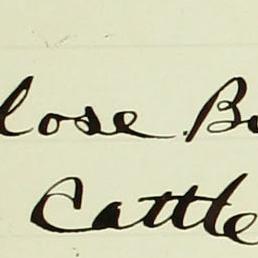 lose B
Cattle